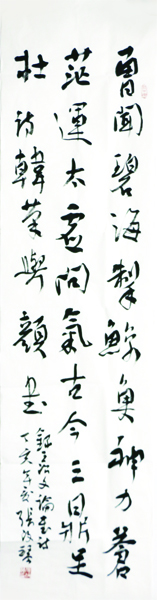 曾聞碧海掣鯨魚神力蒼
茫運太虛間氣古今三鼎足
杜詩韓筆與顏書
論書詩
丁亥年